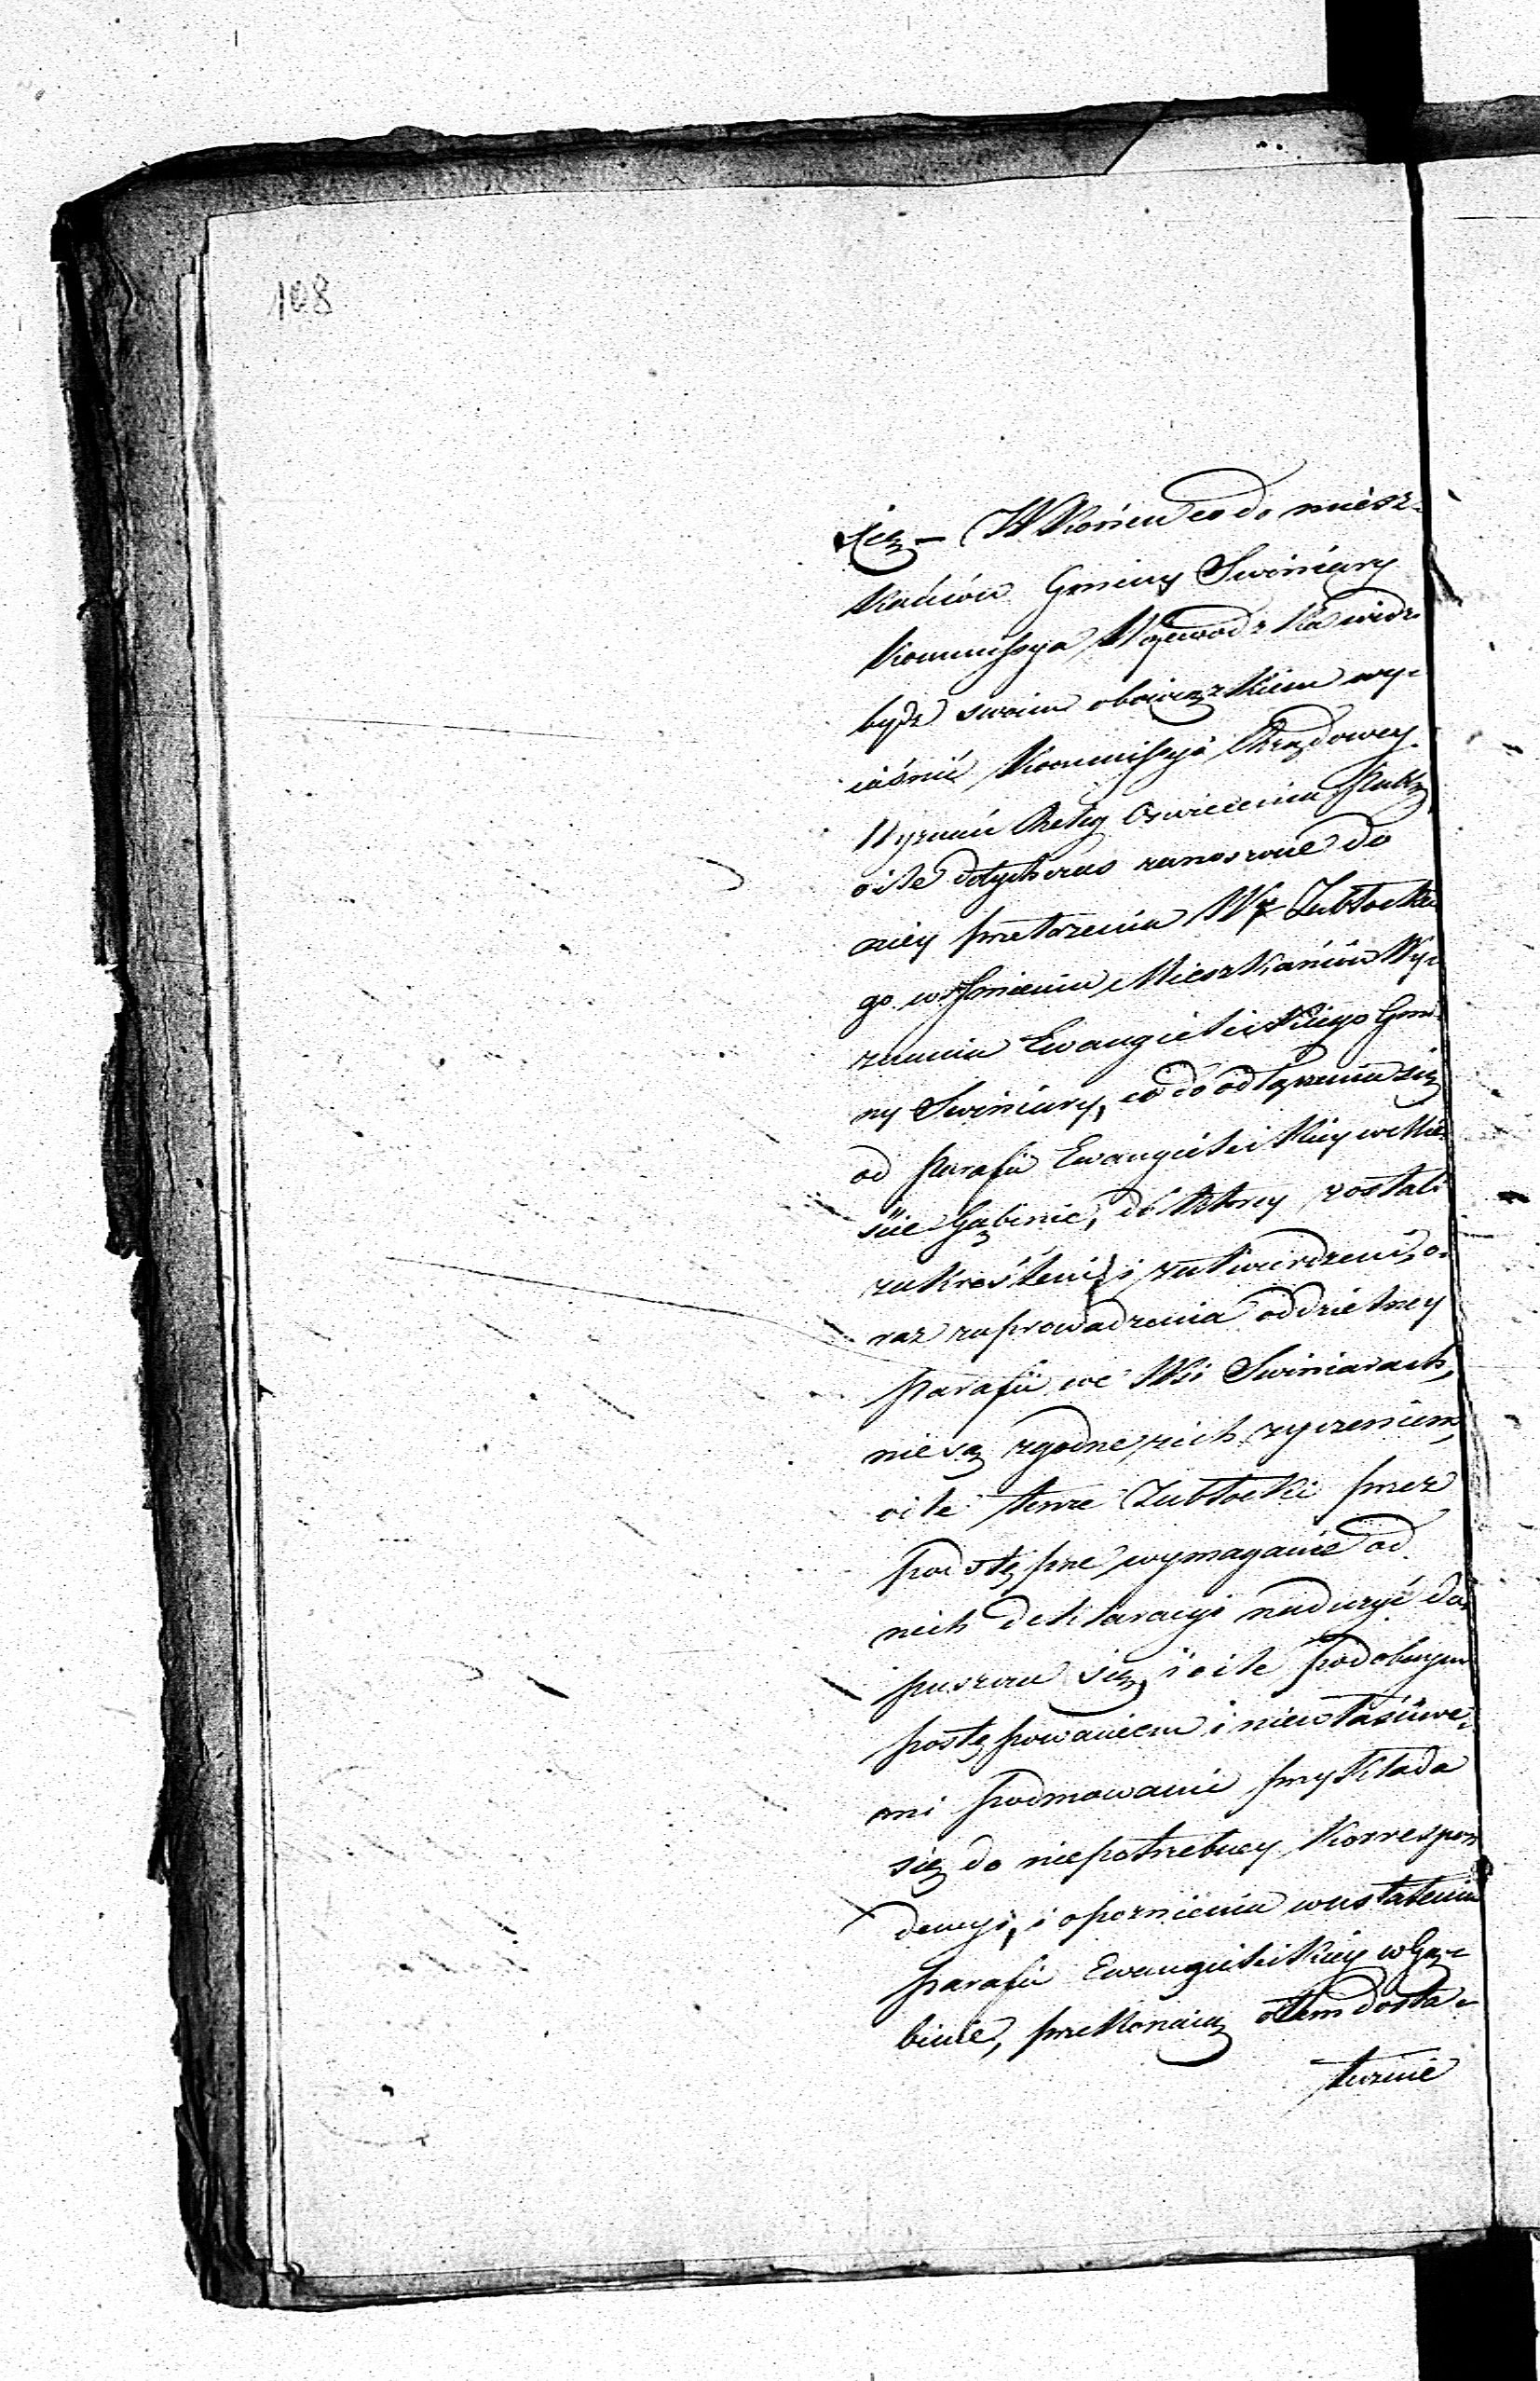 108
się — W Końcu co do miesz-
kańców Gminy Swiniary
Kommissya Wojewodzka widzi
bydź swoim obowiązkiem wy-
iaśnić Kommissyi Rządowey
Wyznań Relig Oswiecenia Publ
oile dotychczas zanoszone do
niey przełożenia Wgo Zabłockie
go w Jmieniu Mieszkańców Wy-
znania Ewangielickiego Gmi-
ny Swiniary, co do odłączenia się
od Parafii Ewangielickiey w Mie
ście Gąbinie, do ktorey zostali
zakreśleni i zatwierdzeni, o-
raz zaprowadzenia oddzielney
Parafii we Wsi Swiniarach,
nie są zgodne z ich życzeniem,
oile tenże Zabłocki przez
podstępne wymaganie od
nich deklaracyi nadużyć do-
puszcza się, i oile podobnym
postępowaniem i niewłaściwe-
mi podmowami przykłada
się do niepotrzebney korrespon
dencyi, i opoznienia w ustaleniu
Parafii Ewangielickiey w Gą-
binie, przekonaią o tem dosta-
tecznie